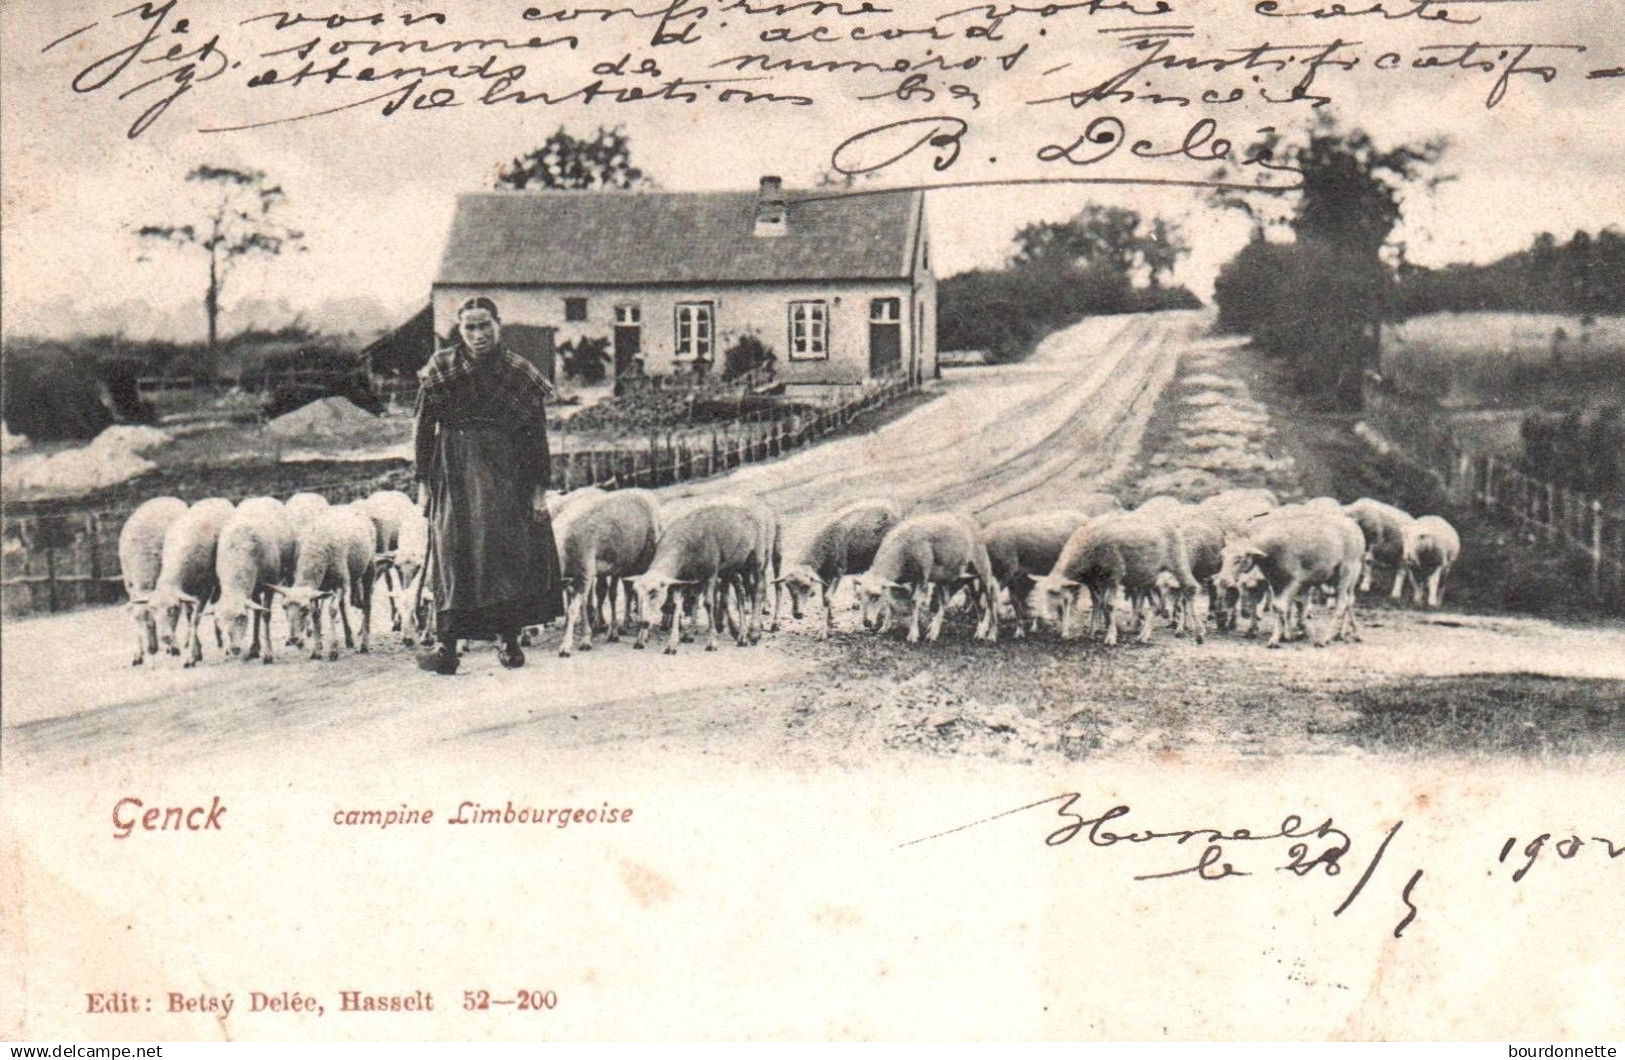 Je vous confirme votre carte
et sommes d'accord.
J'attends des numéros, Justificatifs -
Salutations bien sincères
B. Delée
Genck campine Limbourgeoise
Hasselt
le 28/5 1902
Edit: Betsÿ Delée, Hasselt 52—200
© delcampe.net
bourdonnette